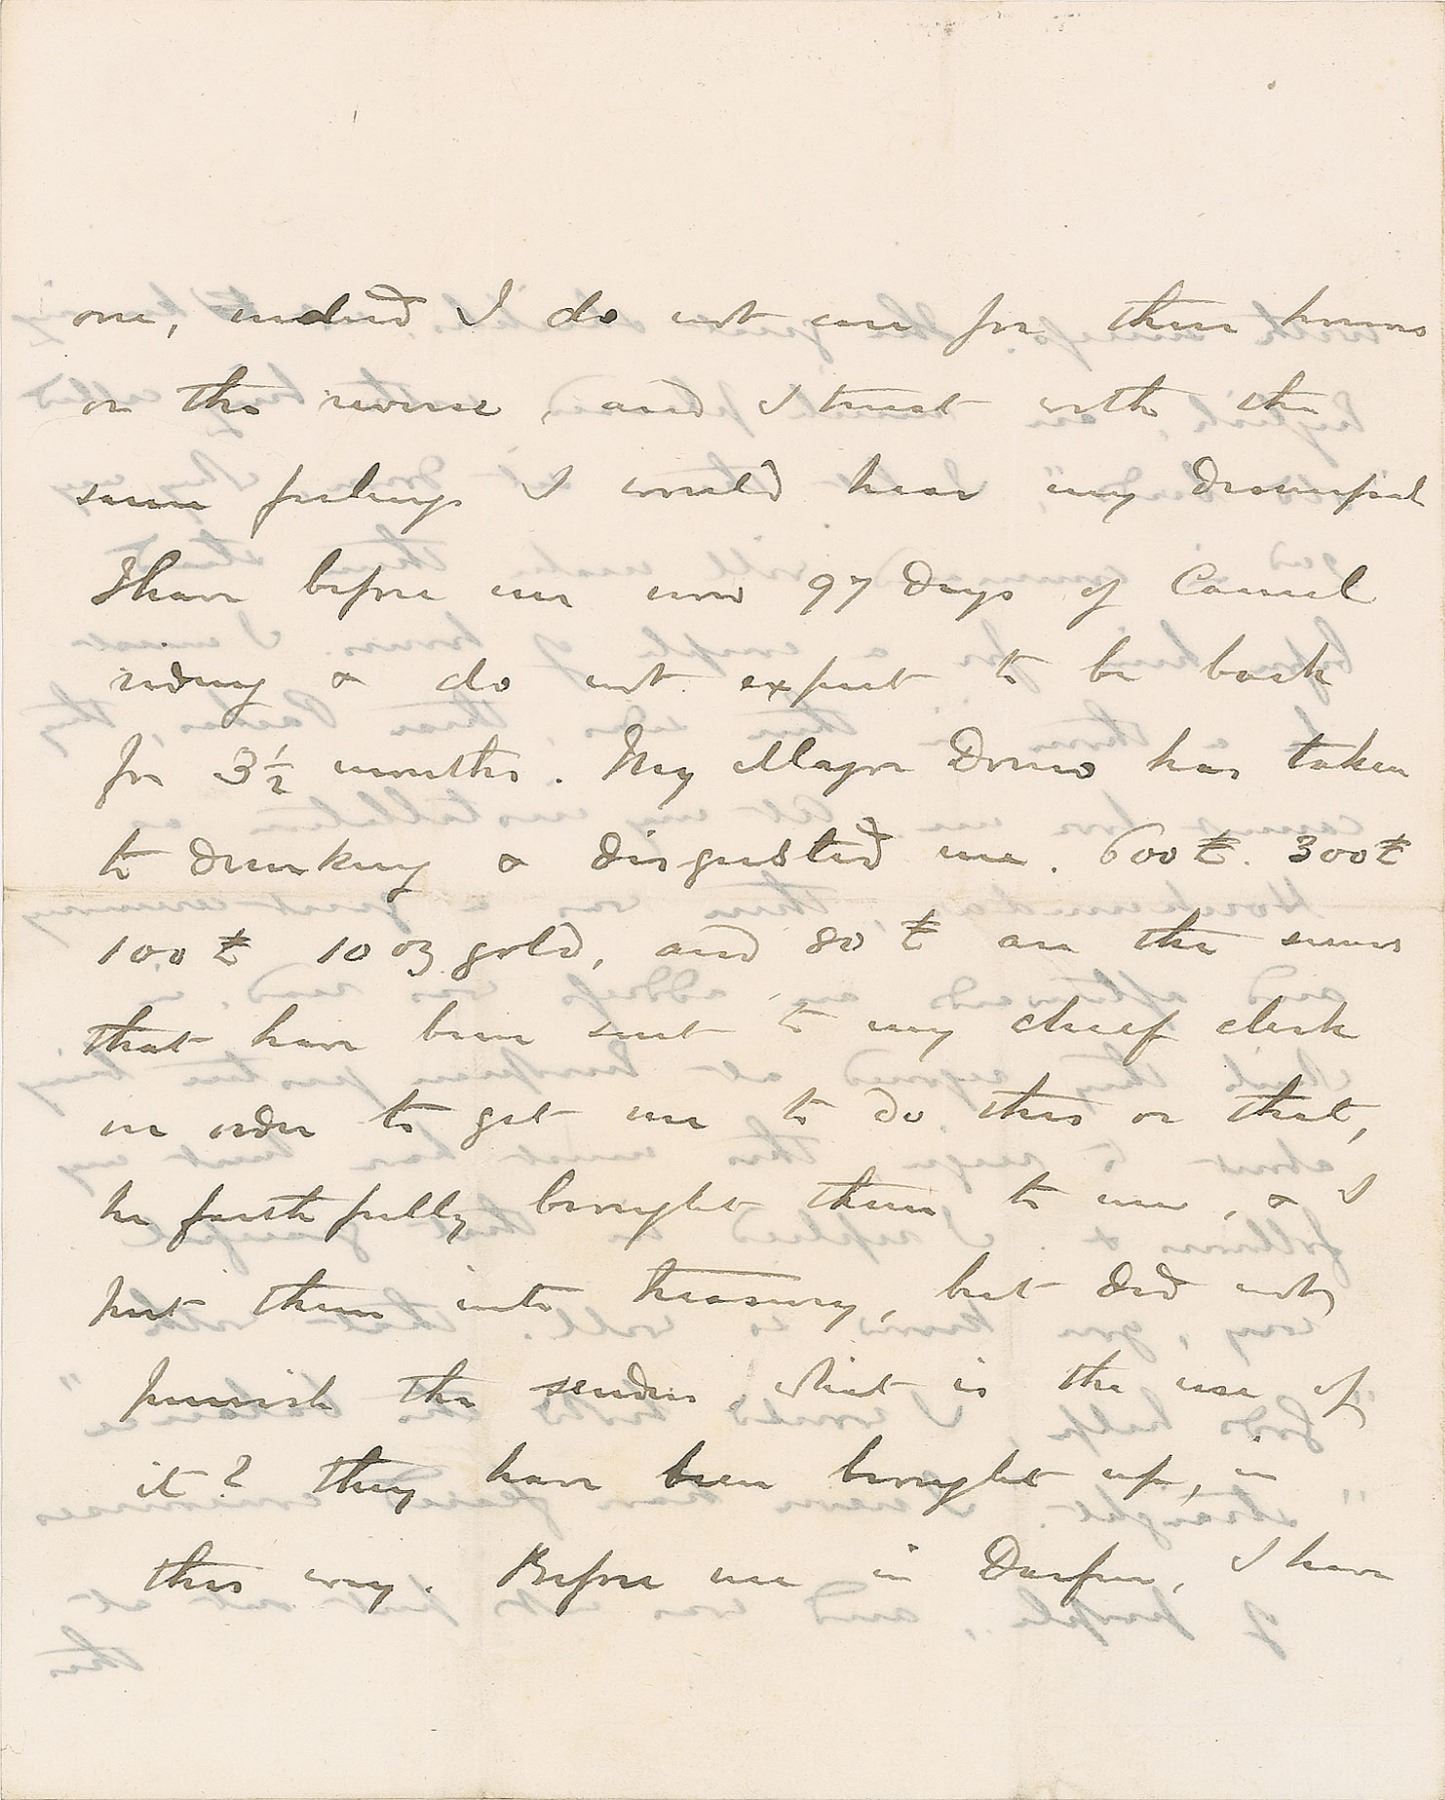 one, indeed I do not care for these honors
or the reverse, and I trust with the
same feelings I would hear my downfall
I have before me now 97 days of Camel
riding & do not expect to be back
for 3½ months. My Major Domo has taken
to drinking & disgusted me. 600£. 300£
100£ 10 oz gold, and 80£ are the sums
that have been sent to my chief clerk
in order to get me to do this or that,
he faithfully brought them to me, & I
put them into treasury, but did not
punish the senders what is the use of
it? they have been brought up, in
this way. Before me in Darfur, I have